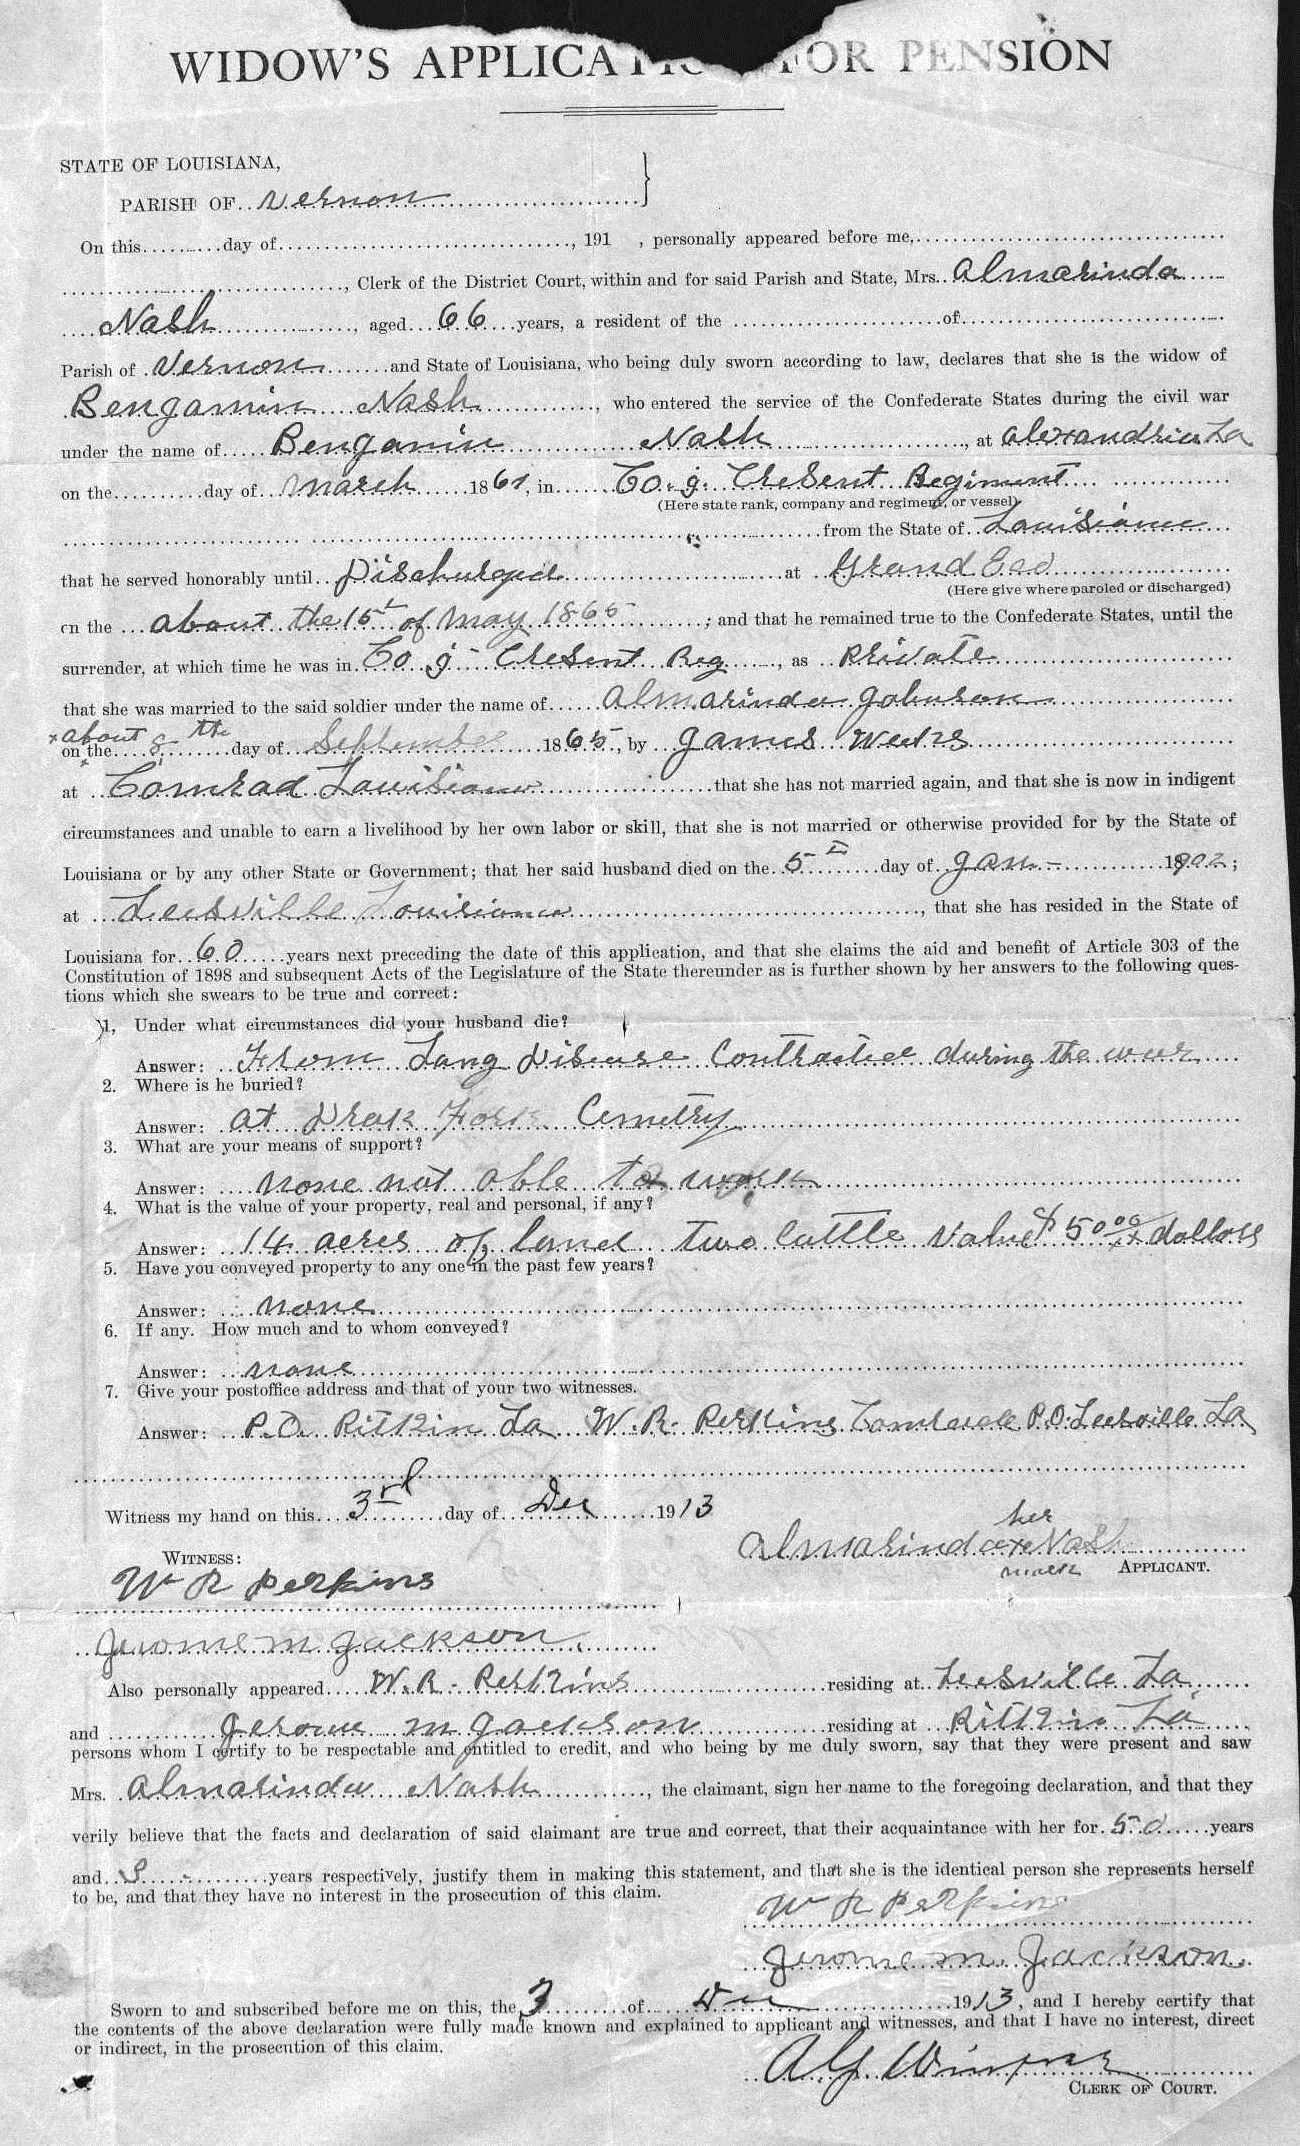 WIDOW'S APPLICATI FOR PENSION
STATE OF LOUISIANA,
PARISH OF Vernon
On this day of , 191 , personally appeared before me,
, Clerk of the District Court, within and for said Parish and State, Mrs. Almarinda
Nash , aged 66 years, a resident of the of
Parish of Vernon and State of Louisiana, who being duly sworn according to law, declares that she is the widow of
Bengamin Nash , who entered the service of the Confederate States during the civil war
under the name of Bengamin Nash , at Alexandria La
on the day of March 1861, in Co. g. Cresent Regiment
(Here state rank, company and regiment, or vessel)
from the State of Louisiana
that he served honorably until Discharged at Grand Eco
(Here give where paroled or discharged)
on the about the 15 of May 1865 ; and that he remained true to the Confederate States, until the
surrender, at which time he was in Co g Cresent Reg , as Private
that she was married to the said soldier under the name of Almarinda Johnson
x about
on the 8 the day of September 1865, by James Weeks
at Comrad Louisiana that she has not married again, and that she is now in indigent
circumstances and unable to earn a livelihood by her own labor or skill, that she is not married or otherwise provided for by the State of
Louisiana or by any other State or Government; that her said husband died on the 5 day of Jan 1902;
at Leesville Louisiana , that she has resided in the State of
Louisiana for 60 years next preceding the date of this application, and that she claims the aid and benefit of Article 303 of the
Constitution of 1898 and subsequent Acts of the Legislature of the State thereunder as is further shown by her answers to the following ques-
tions which she swears to be true and correct:
1, Under what circumstances did your husband die?
Answer: From Lung Disease Contracted during the war
2. Where is he buried?
Answer: at Drak Fork Cemetry
3. What are your means of support?
Answer: none not able to work
4. What is the value of your property, real and personal, if any?
Answer: 14 acres of land two cattle value $50 00/xx dollars
5. Have you conveyed property to any one in the past few years?
Answer: none
6. If any. How much and to whom conveyed?
Answer: none
7. Give your postoffice address and that of your two witnesses.
Answer: P.O. Pitkin La W. R. Perkins P.O. Leesville La
Witness my hand on this 3rd day of Dec 1913
her
Almarinda x Nash
mark APPLICANT.
WITNESS:
W R Perkins
Jerome M Jackson
Also personally appeared W. R. Perkins residing at Leesville La
and Jerome M Jackson residing at Pitkin La
persons whom I certify to be respectable and entitled to credit, and who being by me duly sworn, say that they were present and saw
Mrs. Almarinda Nash , the claimant, sign her name to the foregoing declaration, and that they
verily believe that the facts and declaration of said claimant are true and correct, that their acquaintance with her for 50 years
and years respectively, justify them in making this statement, and that she is the identical person she represents herself
to be, and that they have no interest in the prosecution of this claim.
W R Perkins
Jerome M. Jackson.
Sworn to and subscribed before me on this, the 3 of Dec 1913, and I hereby certify that
the contents of the above declaration were fully made known and explained to applicant and witnesses, and that I have no interest, direct
or indirect, in the prosecution of this claim.
CLERK OF COURT.